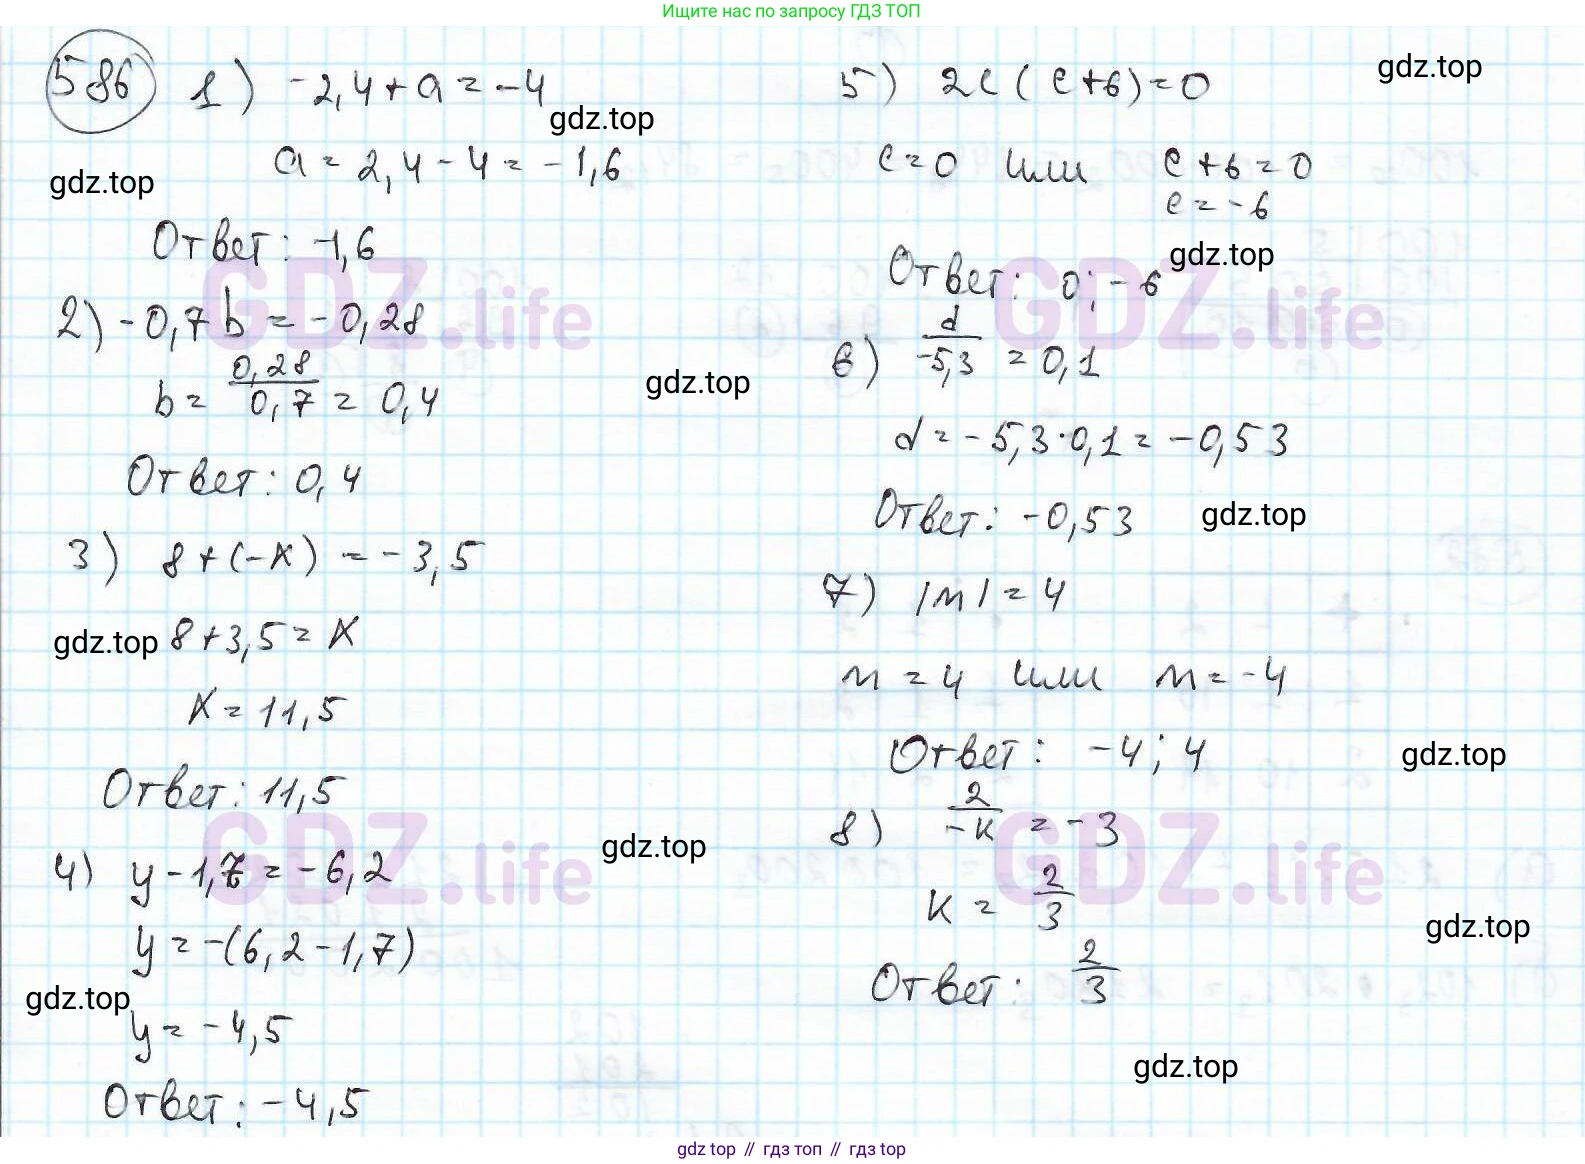 Ищите нас по запросу ГДЗ ТОП
586 1) -2,4+a=-4
gdz.top
a=2,4-4=-1,6
gdz.top
Ответ: -1,6
2) -0,7b=-0,28
b=0,28/0,7=0,4
gdz.top
Ответ: 0,4
3) 8+(-x)=-3,5
gdz.top
8+3,5=x
x=11,5
Ответ: 11,5
4) y-1,7=-6,2
gdz.top
y=-(6,2-1,7)
gdz.top
y=-4,5
Ответ: -4,5
5) 2c(c+6)=0
gdz.top
c=0 или c+6=0
c=-6
gdz.top
Ответ: 0;-6
6) d/-5,3=0,1
d=-5,3·0,1=-0,53
Ответ: -0,53
gdz.top
7) |m|=4
m=4 или m=-4
Ответ: -4; 4
gdz.top
8) 2/-k=-3
k=2/3
gdz.top
Ответ: 2/3
gdz.top
GDZ.life
GDZ.life
GDZ.life
GDZ.life
gdz top // гдз топ // гдз top